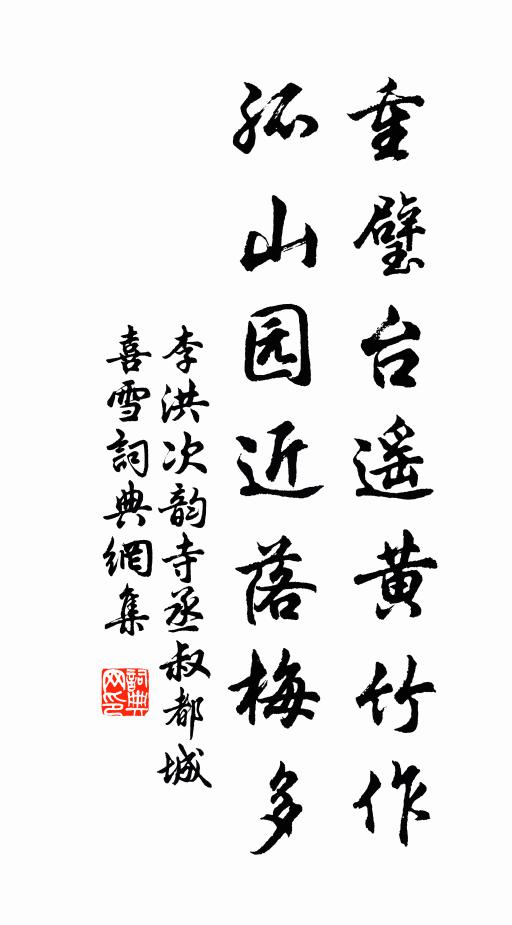 重璧台遥黄竹作
孤山园近落梅多
李洪次韵寺丞叔都城
喜雪詞典網集
詞典网印